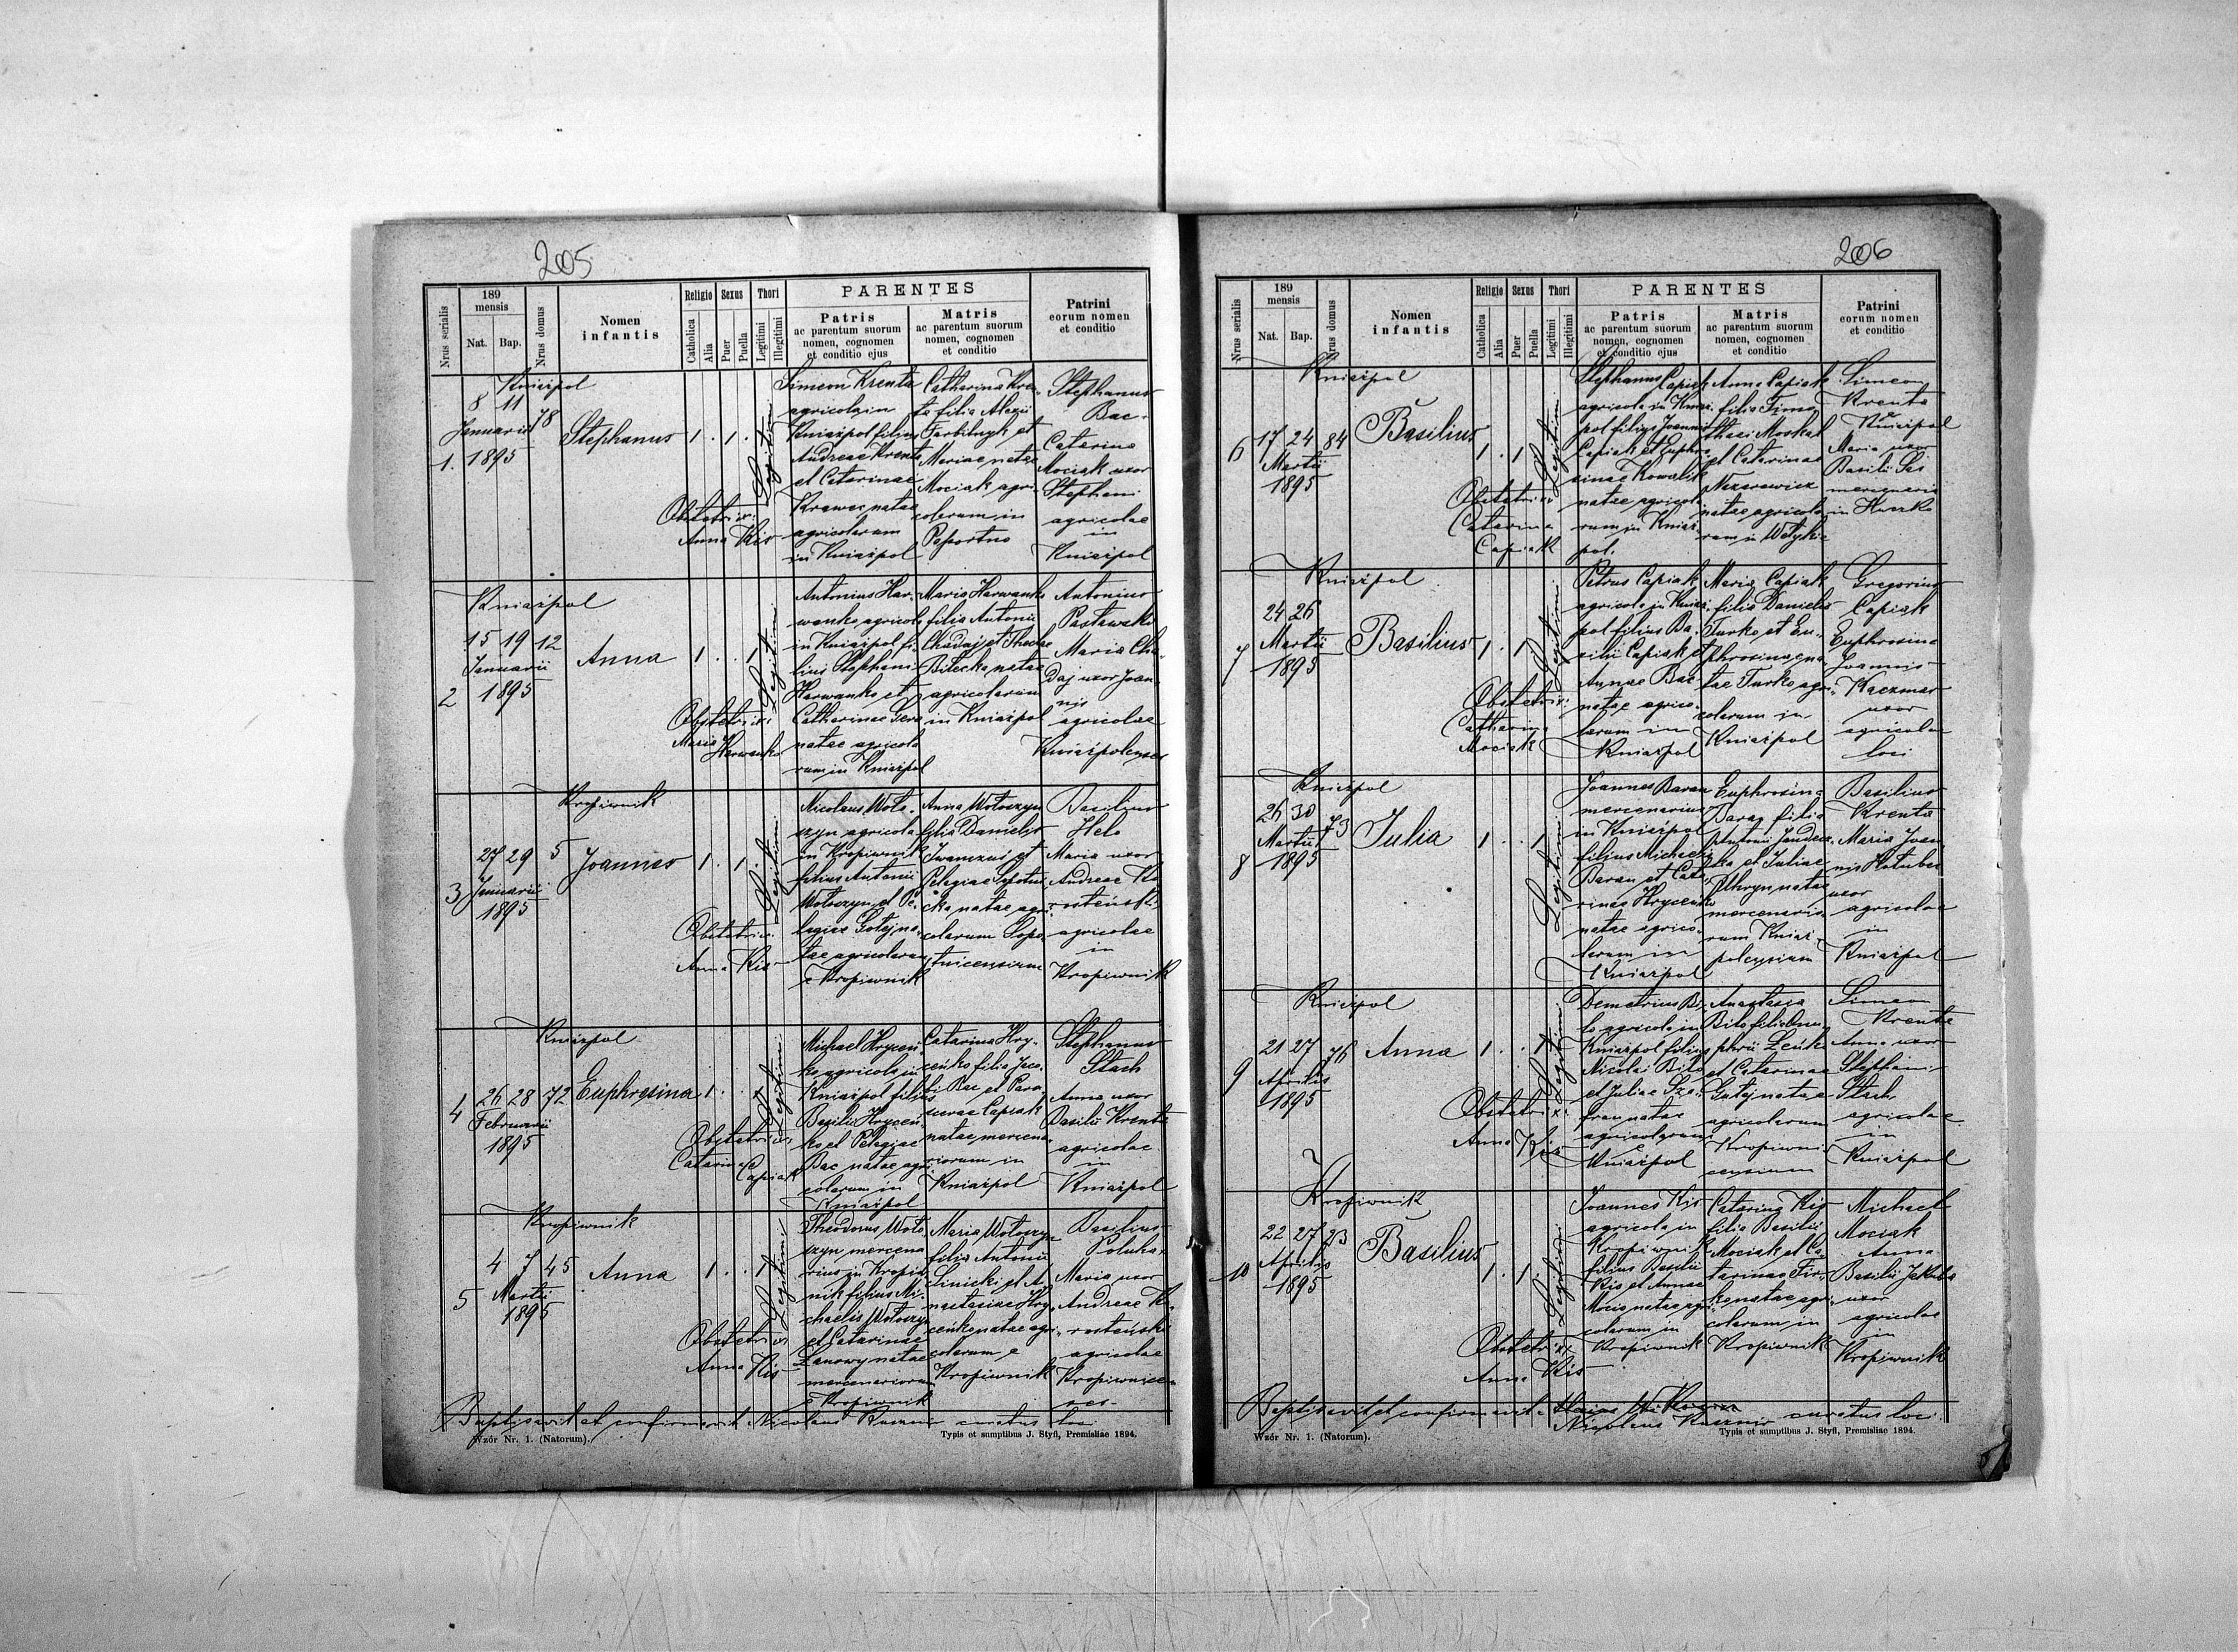 205
Nrus serialis
189
mensis
Nat.
Bap.
Nrus domus
Nomen
infantis
Religio
Catholica
Alia
Sexus
Puer
Puella
Thori
Legitimi
Illegitimi
PARENTES
Patris
ac parentum suorum
nomen, cognomen
et conditio ejus
Matris
ac parentum suorum
nomen, cognomen
et conditio
Patrini
eorum nomen
et conditio
Kniażpol
8 11
Januarii 78
1. 1895
Stephanus
1 . 1 .
Legitimi
Obstetrix:
Anna Kis
Simeon Krenta
agricola in
Kniażpol filius
Andreae Krenta
et Catarinae
Krawec natae
agricolarum
in Kniażpol
Catharina Kren-
ta filia Alexii
et
Mariae natae
Mociak agri-
colarum in
Paportno
Stephanus
Bac
Catarina
Mociak uxor
Stephani
agricolae
in
Kniażpol
Kniażpol
15 19 12
Januarii
2 1895
Anna
1 . . 1
Legitimi
Obstetrix:
Maria
Harwanko
Antonius Har-
wanko agricola
in Kniażpol fi-
lius Stephani
Harwanko et
Catharinae
natae agricola
rum in Kniażpol
Maria Harwanko
filia Antonii
Chadaj et Theclae
Bilecka natae
agricolarum
in Kniażpol
Antonius
Pastawski
Maria Cha-
daj uxor Joan-
nis
agricolae
Kniażpolenses
Kropiwnik
27 29 5
3 Januarii
1895
Joannes
1 . 1 .
Legitimi
Obstetrix:
Anna Kis
Nicolaus Woło-
szyn agricola
in Kropiwnik
filius Antonii
Wołoszyn et Pe-
lagiae Gołej na-
tae agricolarum
e Kropiwnik
Anna Wołoszyn
filia Danielis
Iwanczui et
Pelagiae
natae agri-
colarum Sopo-
tnicensium
Basilius
Hela
Maria uxor
Andreae Ko-
agricolae
in
Kropiwnik
Kniażpol
26 28 72
4 Februarii
1895
Euphrosina
1 . . 1
Legitimi
Obstetrix:
Catarina
Capiak
Michael Hryceń-
ko agricola in
Kniażpol filius
Basilii Hryceń-
ko et Pelagiae
Bac natae agri-
colarum in
Kniażpol
Catarina Hry-
ceńko filia Jaco-
bi Bac et Para-
scevae Capiak
natae mercena-
riorum in
Kniażpol
Stephanus
Stach
Anna uxor
Basilii Krenta
agricolae
in
Kniażpol
Kropiwnik
4 7 45
5 Martii
1895
Anna
1 . . 1
Legitimi
Obstetrix
Anna Kis
Theodorus Woło-
szyn mercena
rius in Kropiw-
nik filius Mi-
chaelis Wołoszyn
et Catarinae
Łanowy natae
mercenariorum
e Kropiwnik
Maria Wołoszyn
filia Antonii
Linicki et A-
nastasiae Hry-
ceńko natae agri-
colarum e
Kropiwnik
Basilius
Poluha
Maria uxor
Andreae
agricolae
Kropiwnicen-
ses
Baptisavit et confirmavit Nicolaus curatus loci
Wzór Nr. 1. (Natorum).
Typis et sumptibus J. Styfi, Premisliae 1894.
206
Nrus serialis
189
mensis
Nat.
Bap.
Nrus domus
Nomen
infantis
Religio
Catholica
Alia
Sexus
Puer
Puella
Thori
Legitimi
Illegitimi
PARENTES
Patris
ac parentum suorum
nomen, cognomen
et conditio ejus
Matris
ac parentum suorum
nomen, cognomen
et conditio
Patrini
eorum nomen
et conditio
Kniażpol
6 17 24 84
Martii
1895
Basilius
1 . 1
Legitimi
Obstetrix:
Catarina
Capiak
Stephanus Capiak
agricola in Kniaż-
pol filius Joannis
Capiak et Euphro-
sinae Kowalik
natae agricola-
rum in Kniaż-
pol.
Anna Capiak
filia Timo-
thaei Moskal
et Catarinae
Nazarewicz
natae agricola-
rum in
Simeon
Krenta
Kniażpol
Maria uxor
Basilii Sas
mercenarii
in
Kniażpol
24 26
Martii
7 1895
Basilius
1 . 1
Legitimi
Obstetrix:
Catharina
Mociak
Petrus Capiak
agricola in Kniaż-
pol filius Ba-
silii Capiak et
Annae Bac
natae agrico-
larum in
Kniażpol
Maria Capiak
filia Danielis
Turko et Eu-
phrosinae na-
tae Turko agri-
colarum in
Kniażpol
Gregorius
Capiak
Euphrosina
Joannis
Kaczmar
uxor
agricolae
loci
Kniażpol
26 30 73
Martii
8 1895
Julia
1 . . 1
Legitimi
Joannes Baran
mercenarius
in Kniażpol
filius Michaelis
Baran et Cata-
rinae Hryceńko
natae agrico-
larum in
Kniażpol
Euphrosina
Baran filia
Antonii
et Juliae
natae
mercenario-
rum Kniaż-
polensium
Basilius
Krenta
Maria Joan-
nis
uxor
agricolae
in
Kniażpol
Kniażpol
21 27 76
9 Aprilis
1895
Anna
1 . . 1
Legitimi
Obstetrix:
Anna Kis
Demetrius Bi-
ło agricola in
Kniażpol filius
Nicolai Biło
et Juliae Sze-
fran natae
agricolarum
e
Kniażpol
Anastasia
Biło filia Onu-
phrii Leńko
et Catarinae
Gołej natae
agricolarum
Kropiwni-
censium
Simeon
Krenta
Anna uxor
Stephani
Stach
agricolae
in
Kniażpol
Kropiwnik
22 27 23
10 Aprilis
1895
Basilius
1 . 1
Legitimi
Obstetrix
Anna Kis
Joannes Kis
agricola in
Kropiwnik
filius Basilii
Kis et Annae
natae agri-
colarum in
Kropiwnik
Catarina Kis
filia Basilii
Mociak et Ca-
tarinae
natae agri-
colarum in
Kropiwnik
Michael
Mociak
Anna
Basilii
uxor
agricolae
in
Kropiwnik
Baptisavit et confirmavit
Nicolaus curatus loci
Wzór Nr. 1. (Natorum).
Typis et sumptibus J. Styfi, Premisliae 1894.